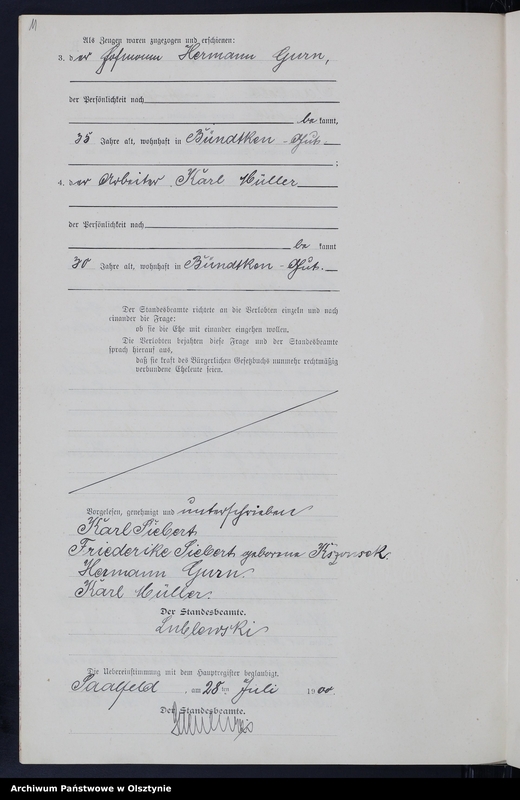 11
Als Zeugen waren zugezogen und erschienen:
3. der Hofmann Hermann Gurn,
der Persönlichkeit nach
bekannt,
35 Jahre alt, wohnhaft in Bündtken - Gut
;
4. der Arbeiter Karl Müller
der Persönlichkeit nach
be kannt
30 Jahre alt, wohnhaft in Bündtken - Gut.
Der Standesbeamte richtete an die Verlobten einzeln und nach
einander die Frage:
ob sie die Ehe mit einander eingehen wollen.
Die Verlobten bejahten diese Frage und der Standesbeamte
sprach hierauf aus,
daß sie kraft des Bürgerlichen Gesetzbuchs nunmehr rechtmäßig
verbundene Eheleute seien.
Vorgelesen, genehmigt und unterschrieben
Karl Siebert
Friederike Siebert geborene
Hermann Gurn.
Karl Müller.
Der Standesbeamte.
Lublowski
Die Uebereinstimmung mit dem Hauptregister beglaubigt.
Saalfeld, am 28ten Juli 1900.
Der Standesbeamte.
Archiwum Państwowe w Olsztynie